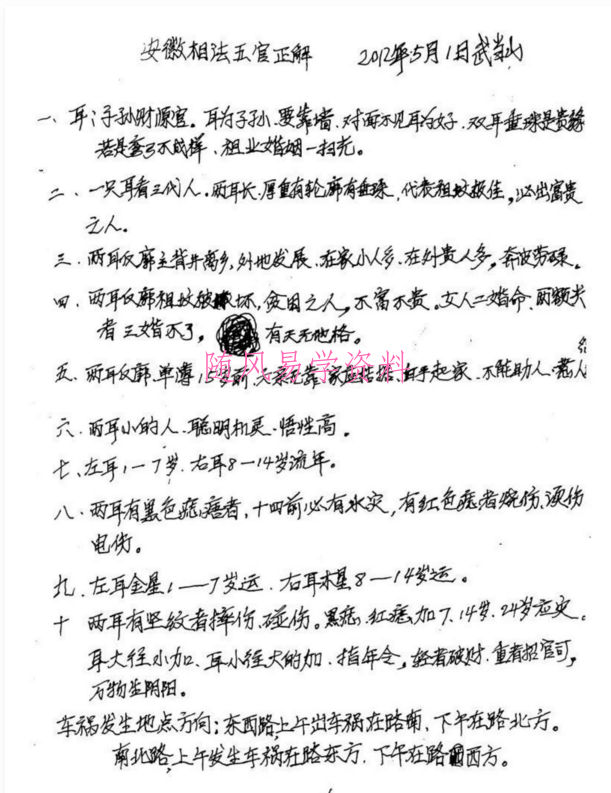 安徽相法五官正解 2012年5月1日武当山
一、耳；子孙财源宫。耳为子孙、要靠墙、对面不见耳为好、双耳垂珠是贵缘
若是塞了不成样、祖业婚姻一扫光。
二、一只耳看三代人、两耳长、厚重有轮廓有垂珠、代表祖坟极佳，必出富贵
之人。
三、两耳反廓主背井离乡，外地发展、在家小人多、在外贵人多，奔波劳碌。
四、两耳反廓祖坟破坏，贫困之人，不富不贵。女人二婚命、两额尖
者三婚不了，有天无地格。
随风易学资料
五、两耳反廓、单薄、15岁前、家、白手起家、不能助人、惹人
六、两耳小的人、聪明机灵、悟性高。
七、左耳1一7岁、右耳8一14岁流年。
八、两耳有黑色痣痦者，十四前必有水灾，有红色痣者烧伤、烫伤
电伤。
九、左耳金星1——7岁运、右耳木星8—14岁运。
十 两耳有竖纹者摔伤、碰伤。黑痣、红痣、加7、14岁、24岁应灾。
耳大往小加、耳小往大的加、指年令，轻者破财、重者招官司，
万物生阴阳。
车祸发生地点方向；东西路，上午出车祸在路南、下午在路北方。
南北路，上午发生车祸在路东方、下午在路西方。